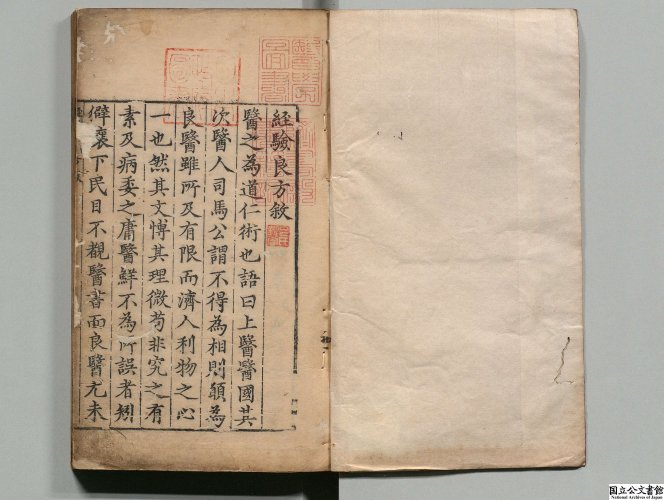 經驗良方敘
醫之為道仁術也語曰上醫醫國其
次醫人司馬公謂不得為相則願為
良醫雖所及有限而濟人利物之心
一也然其文愽其理微苟非究之有
素及病委之庸醫鮮不為所誤者矧
僻襄下民目不覩醫書面良醫尤未
国立公文書館
National Archives of Japan